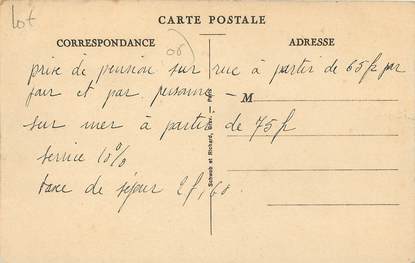 lot
06
CARTE POSTALE
CORRESPONDANCE
ADRESSE
prise de pension sur rue à partir de 65f par
jour et par personne -
M
sur mer à partir de 75f
service 10%
taxe de séjour 2f,60.
Schwob et Richard, Grav. - Paris